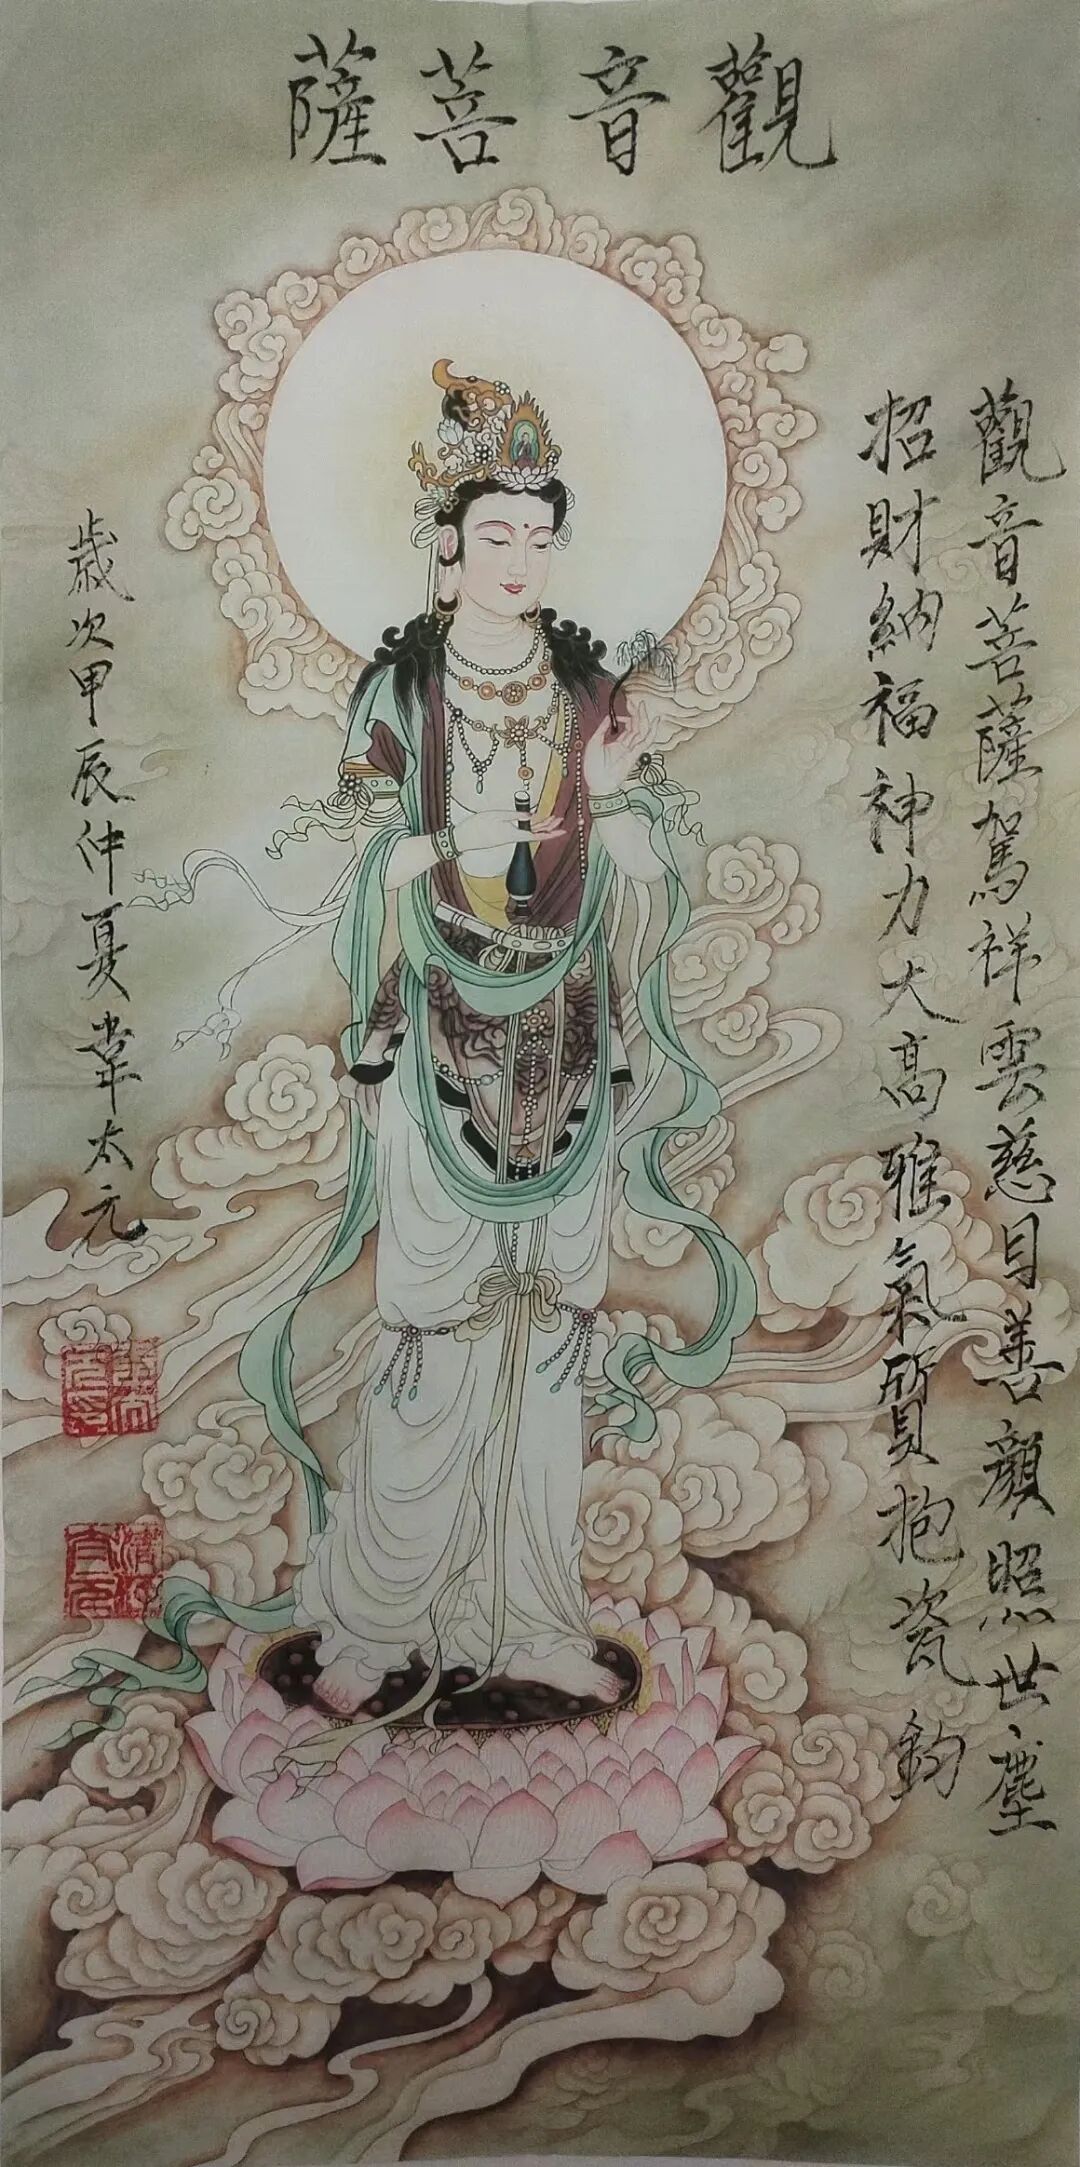 觀音菩薩
觀音菩薩駕祥雲慈目善顏照世塵
招財納福神力大高雅氣質抱瓷鈞
歲次甲辰仲夏韋太元